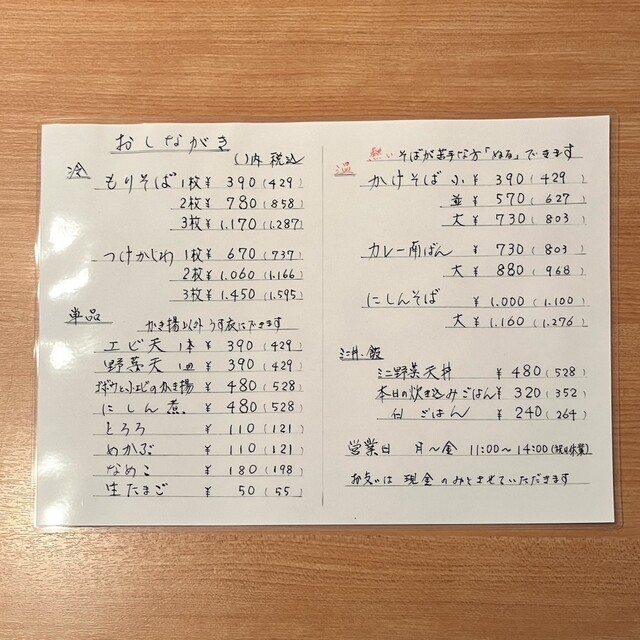 おしながき
( )内 税込
冷
もりそば 1枚 ¥ 390 (429)
2枚 ¥ 780 (858)
3枚 ¥ 1.170 (1.287)
つけかしわ 1枚 ¥ 670 (737)
2枚 ¥ 1.060 (1.166)
3枚 ¥ 1.450 (1.595)
単品
かき揚以外 うす衣にできます
エビ天 1本 ¥ 390 (429)
野菜天 1皿 ¥ 390 (429)
ゴボウと小エビのかき揚 ¥ 480 (528)
にしん煮 ¥ 480 (528)
とろろ ¥ 110 (121)
めかぶ ¥ 110 (121)
なめこ ¥ 180 (198)
生たまご ¥ 50 (55)
熱いそばが苦手な方「ぬる」できます
温
かけそば 小 ¥ 390 (429)
並 ¥ 570 (627)
大 ¥ 730 (803)
カレー南ばん ¥ 730 (803)
大 ¥ 880 (968)
にしんそば ¥ 1.000 (1.100)
大 ¥ 1.160 (1.276)
ミニ丼・飯
ミニ野菜天丼 ¥ 480 (528)
本日の炊き込みごはん ¥ 320 (352)
白ごはん ¥ 240 (264)
営業日 月〜金 11:00〜14:00 (祝日休業)
お支払は 現金のみとさせていただきます